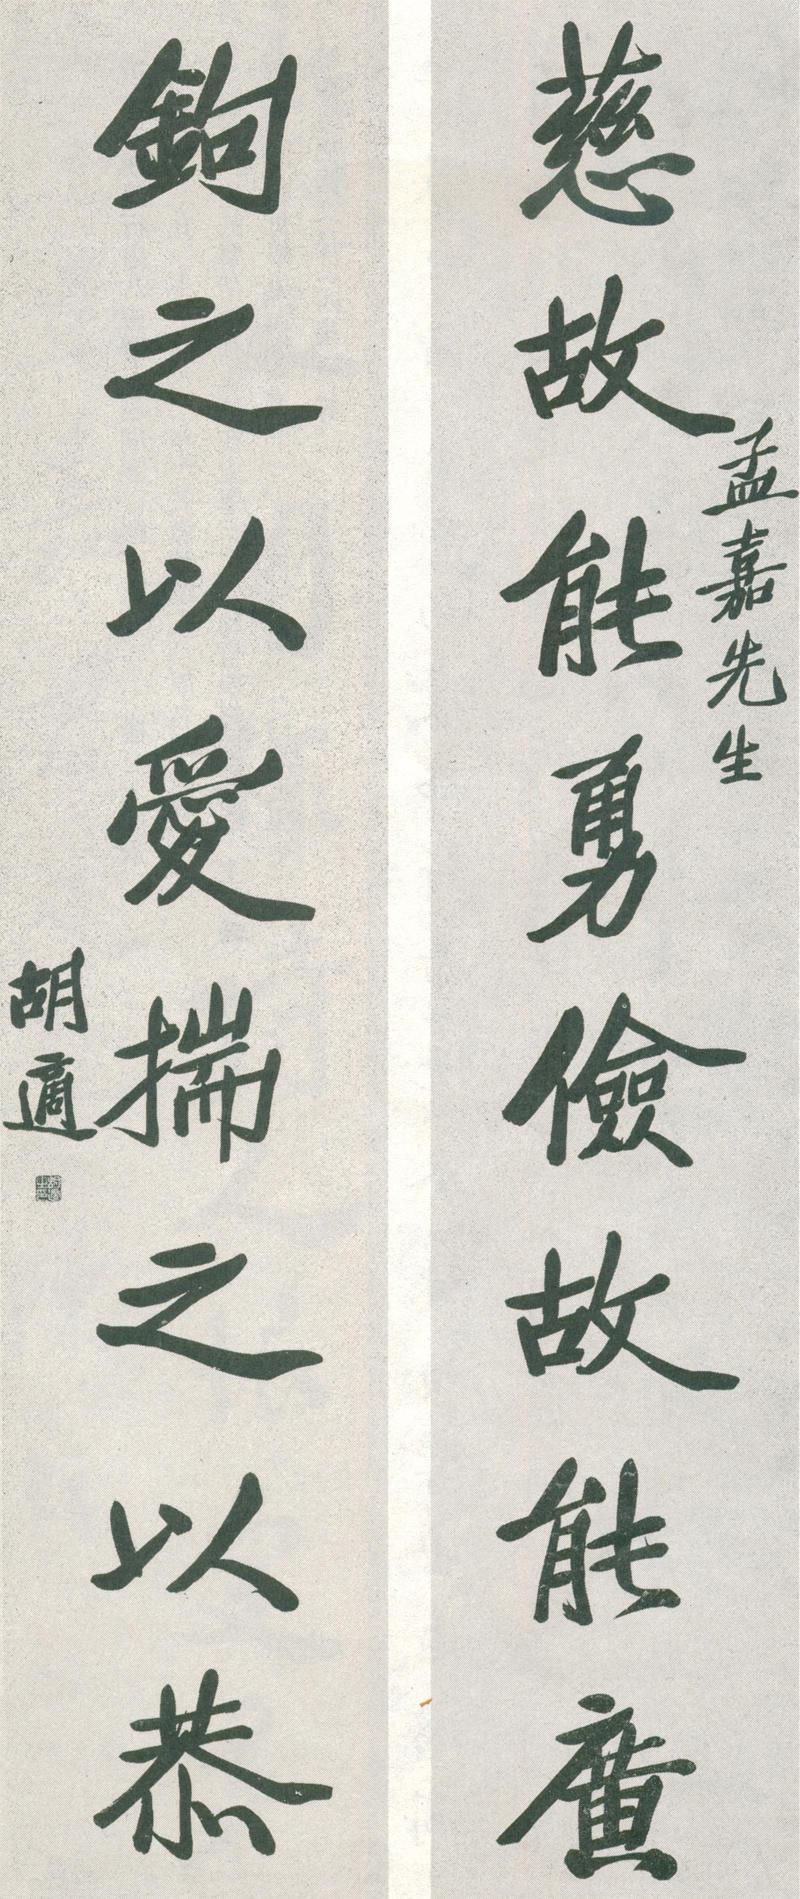 慈故能勇儉故能廣
孟嘉先生
鉤之以愛揣之以恭
胡適